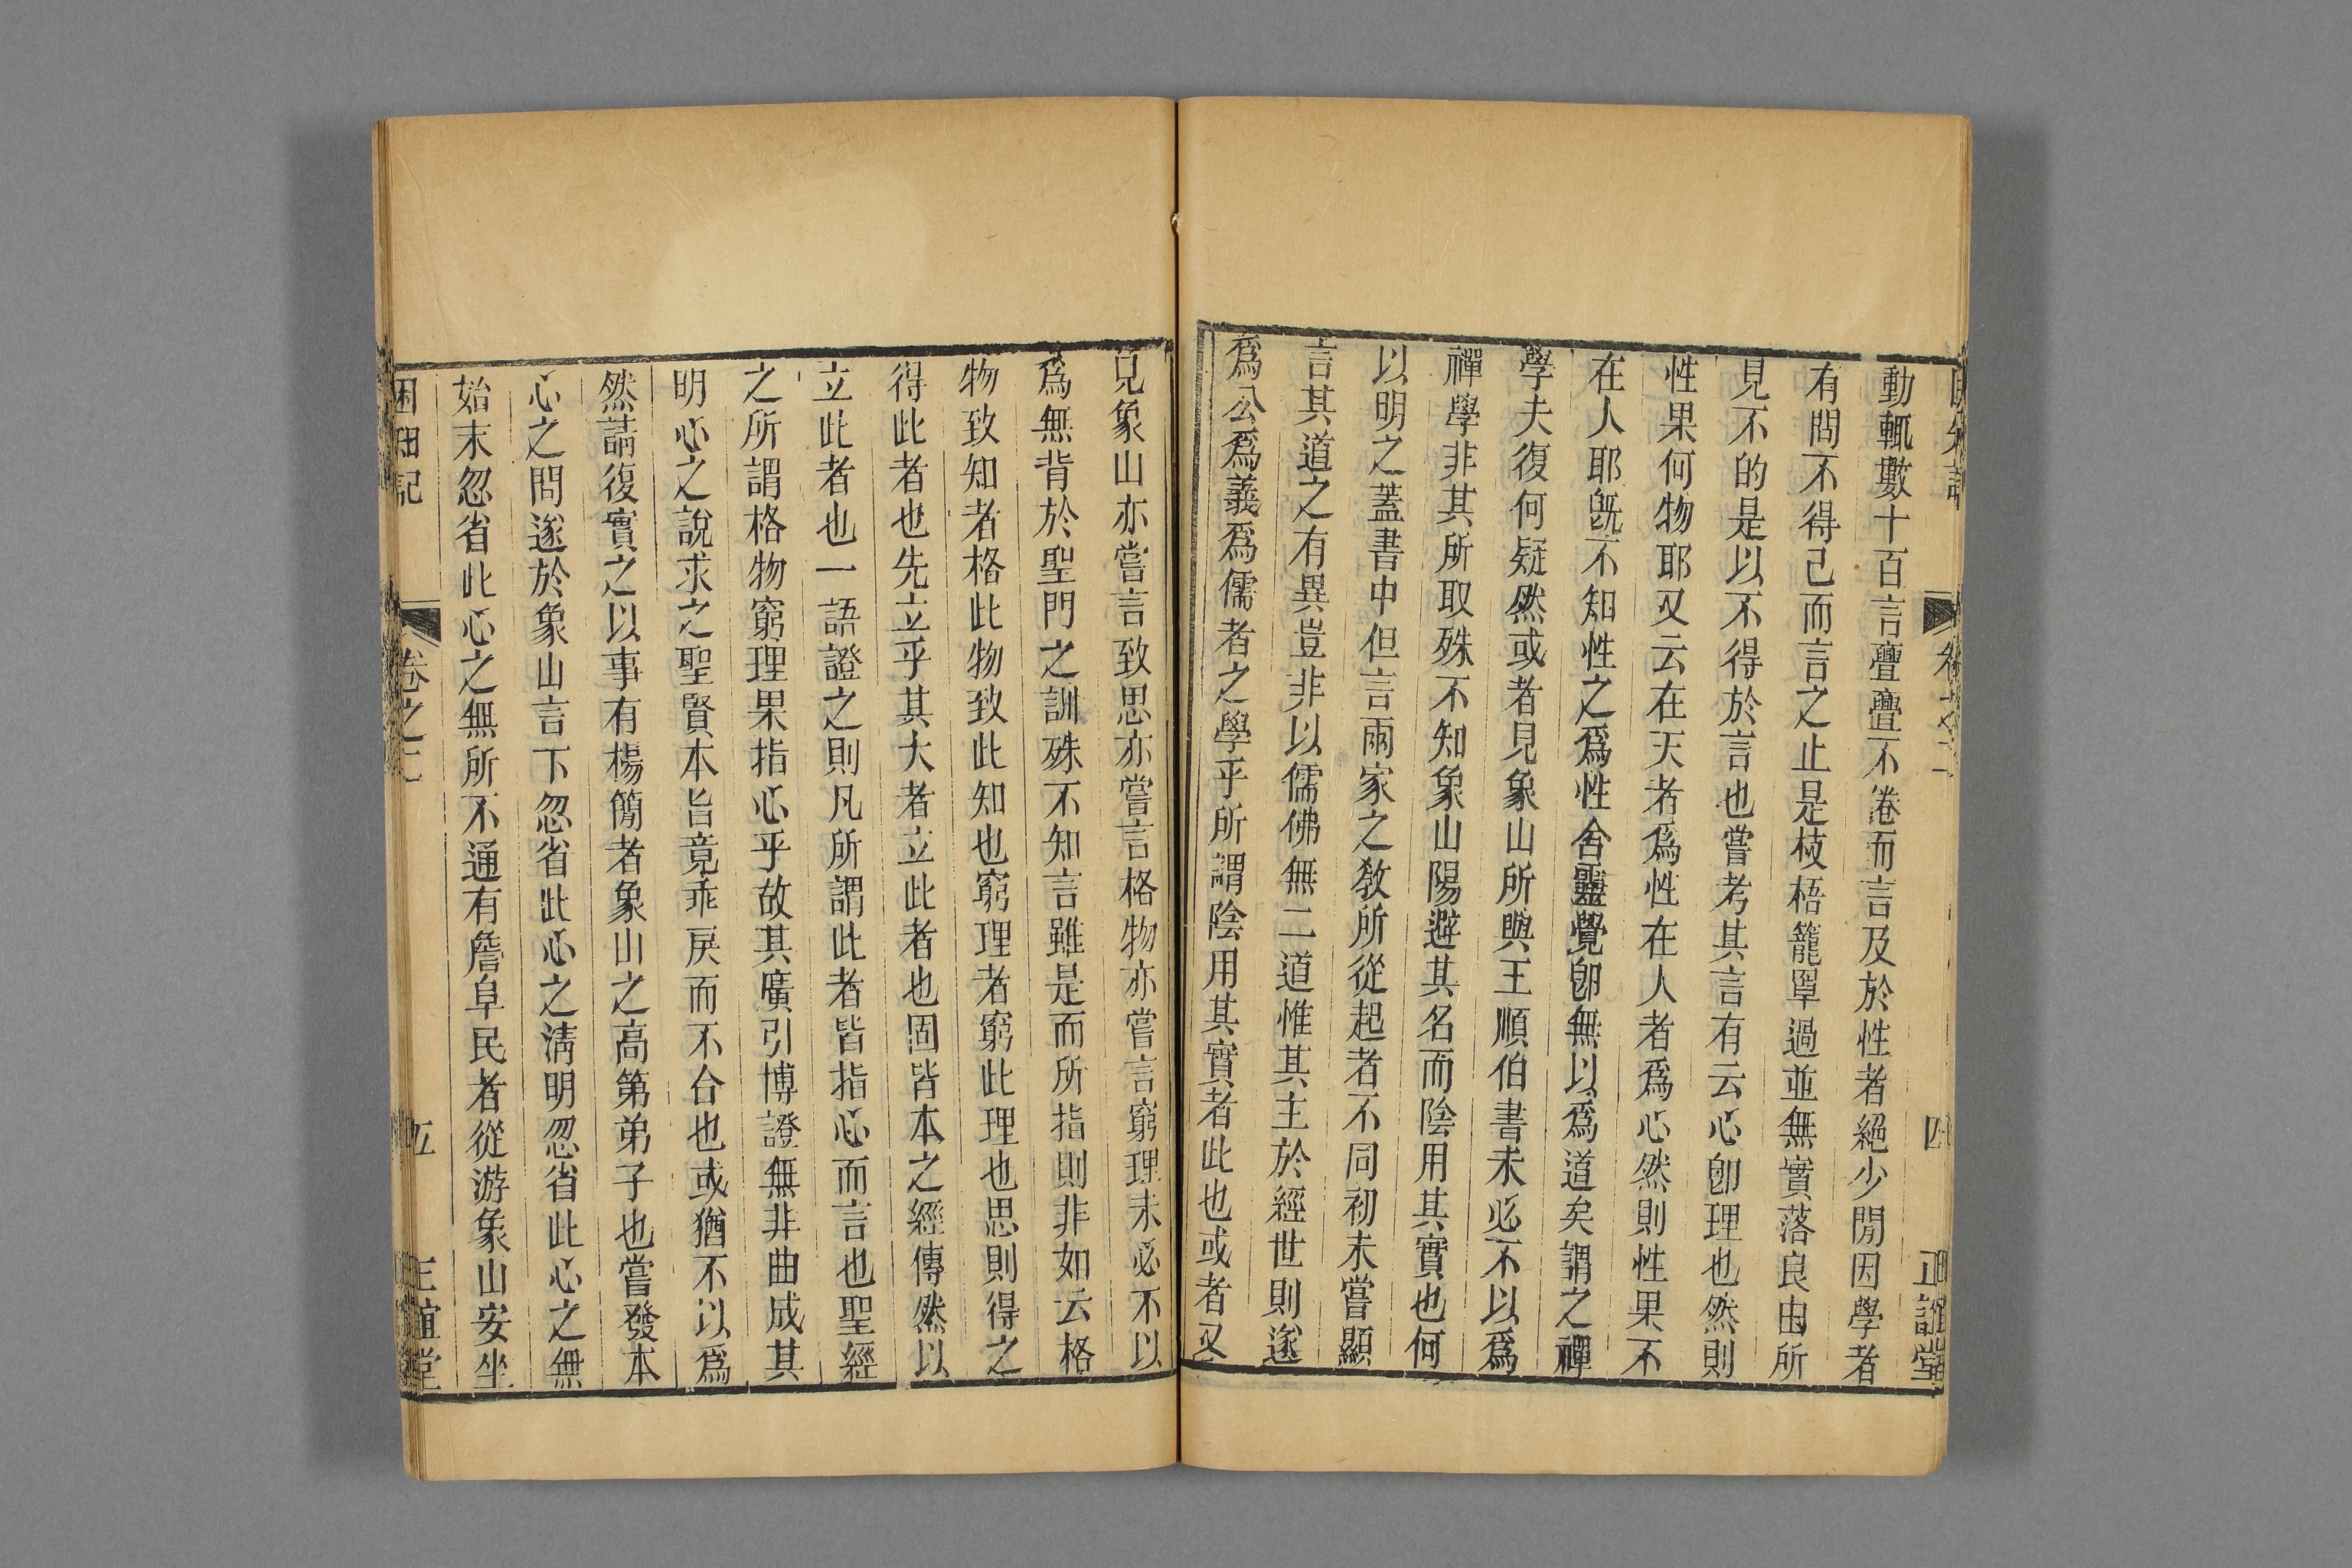 動輒數十百言亹亹不倦而言及於性者絕少閒因學者
有問不得已而言之止是枝梧籠罩過並無實落良由所
見不的是以不得於言也嘗考其言有云心卽理也然則
性果何物耶又云在天者爲性在人者爲心然則性果不
在人耶旣不知性之爲性舍靈覺卽無以爲道矣謂之禪
學夫復何疑然或者見象山所與王順伯書未必不以爲
禪學非其所取殊不知象山陽避其名而陰用其實也何
以明之蓋書中但言兩家之敎所從起者不同初未嘗顯
言其道之有異豈非以儒佛無二道惟其主於經世則遂
爲公爲義爲儒者之學乎所謂陰用其實者此也或者又
見象山亦嘗言致思亦嘗言格物亦嘗言窮理未必不以
爲無背於聖門之訓殊不知言雖是而所指則非如云格
物致知者格此物致此知也窮理者窮此理也思則得之
得此者也先立乎其大者立此者也固皆本之經傳然以
立此者也一語證之則凡所謂此者皆指心而言也聖經
之所謂格物窮理果指心乎故其廣引博證無非曲成其
明心之說求之聖賢本旨竟乖戾而不合也或猶不以爲
然請復實之以事有楊簡者象山之高第弟子也嘗發本
心之問遂於象山言下忽省此心之淸明忽省此心之無
始末忽省此心之無所不通有詹阜民者從游象山安坐
困知記 卷之二 五 正誼堂